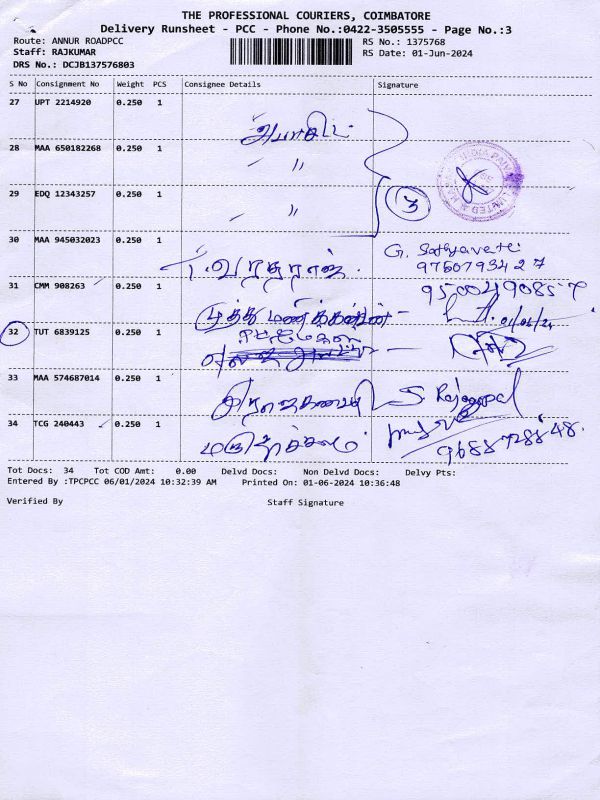 THE PROFESSIONAL COURIERS, COIMBATORE
Delivery Runsheet - PCC - Phone No.:0422-3505555 - Page No.:3
Route: ANNUR ROADPCC RS No.: 1375768
Staff: RAJKUMAR RS Date: 01-Jun-2024
DRS No.: DCJB137576803
S No Consignment No Weight PCS Consignee Details Signature
27 UPT 2214920 0.250 1
28 MAA 650182268 0.250 1
〃
29 EDQ 12343257 0.250 1
〃 3
30 MAA 945032023 0.250 1 G. Sathyavathi
வரதராஜ்
31 CMM 908263 0.250 1 9500490857
முத்து மணிகண்டன் - 01/06/24
32 TUT 6839125 0.250 1
33 MAA 574687014 0.250 1
S. Rajagopal
34 TCG 240443 0.250 1
Tot Docs: 34 Tot COD Amt: 0.00 Delvd Docs: Non Delvd Docs: Delvy Pts:
Entered By :TPCPCC 06/01/2024 10:32:39 AM Printed On: 01-06-2024 10:36:48
Verified By Staff Signature